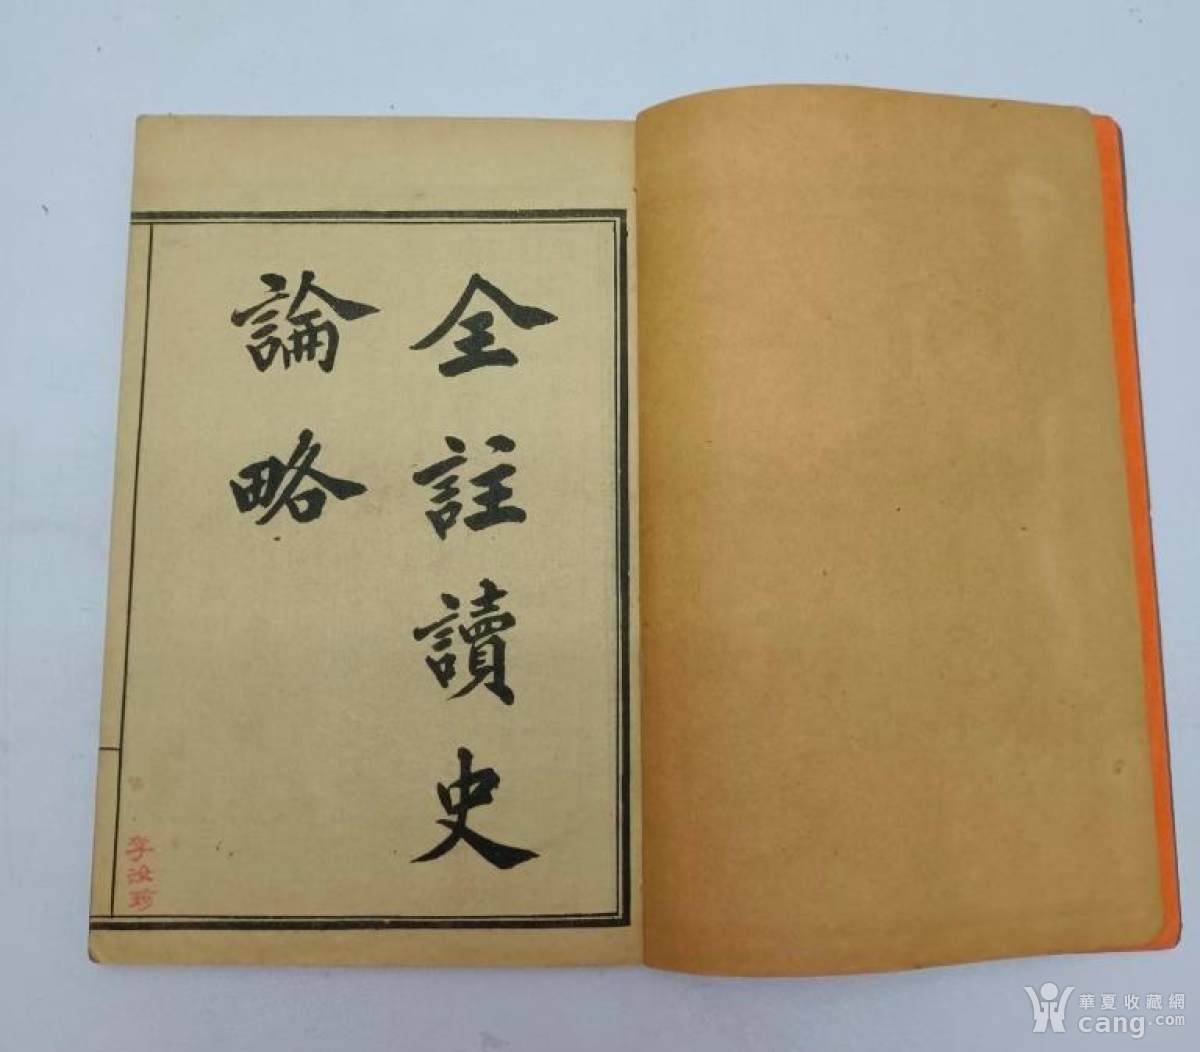 全註讀史
論略
李汝珍
華夏收藏網
cang.com